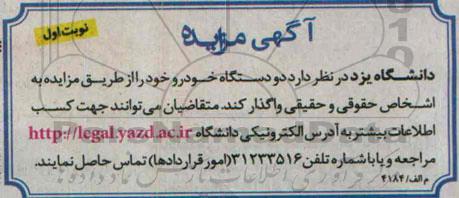 نوبت اول
آگهی مزایده
دانشگاه یزد در نظر دارد دو دستگاه خودرو خود را از طریق مزایده به
اشخاص حقوقی و حقیقی واگذار کند. متقاضیان می‌توانند جهت کسب
اطلاعات بیشتر به آدرس الکترونیکی دانشگاه http://legal.yazd.ac.ir
مراجعه و یا با شماره تلفن ۳۱۲۳۳۵۱۶ (امور قراردادها) تماس حاصل نمایند.
م الف/ ۴۱۸۴